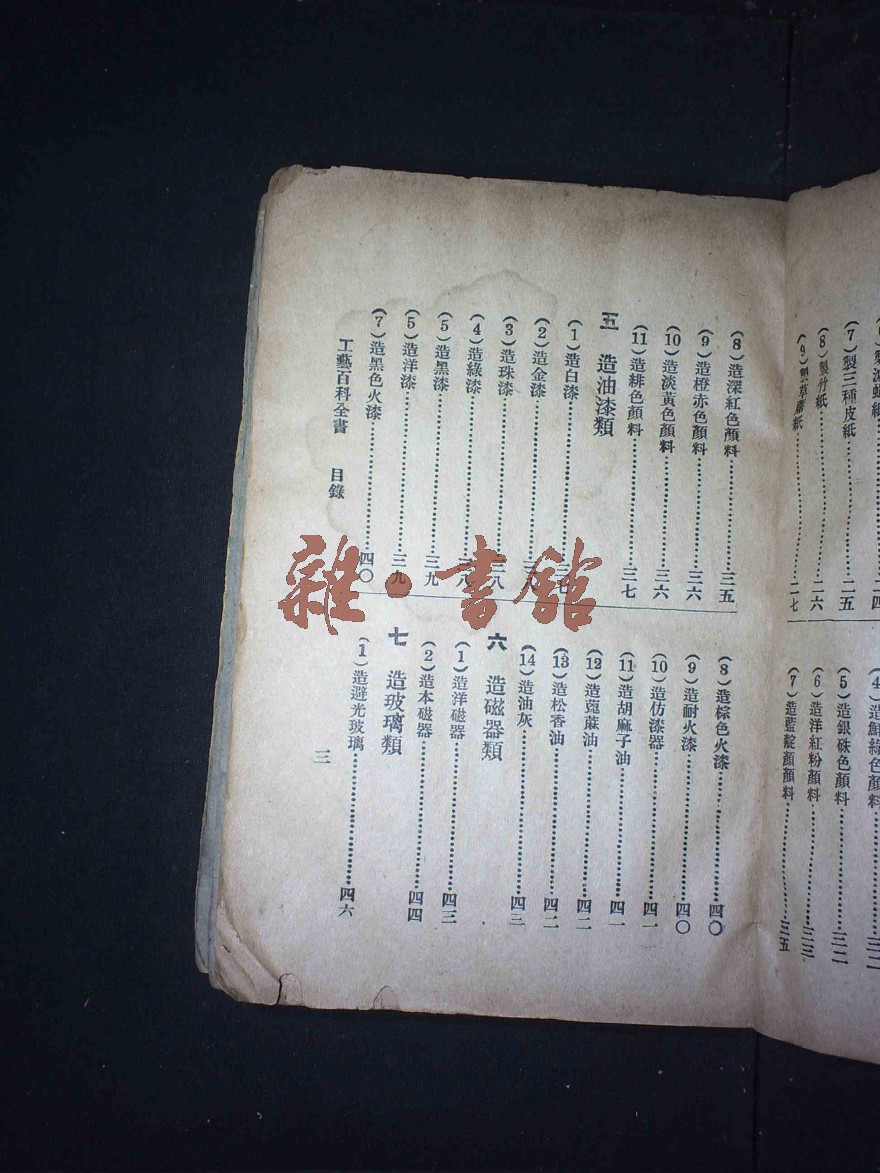 (7)製三種皮紙……二五
(8)製竹紙……二六
紙……二七
(5)造銀硃色顏料……三二
(6)造洋紅粉顏料……三三
(7)造藍靛顏顏料……三五
(8)造深紅色顏料……三五
(9)造橙赤色顏料……三六
(10)造淡黃色顏料……三六
(11)造緋色顏料……三七
五 造油漆類
(1)造白漆……三七
(2)造金漆……
(3)造珠漆……三八
(4)造綠漆……三八
(5)造黑漆……三九
(5)造洋漆……三九
(7)造黑色火漆……四〇
(8)造棕色火漆……四〇
(9)造耐火漆……四〇
(10)造仿漆器……四一
(11)造胡麻子油……四一
(12)造蓖蔴油……四二
(13)造松香油……四二
(14)造油灰……四三
六 造磁器類
(1)造洋磁器……四三
(2)造本磁器……四四
七 造玻璃類
(1)造避光玻璃……四六
工藝百科全書 目錄 三
雜·書館